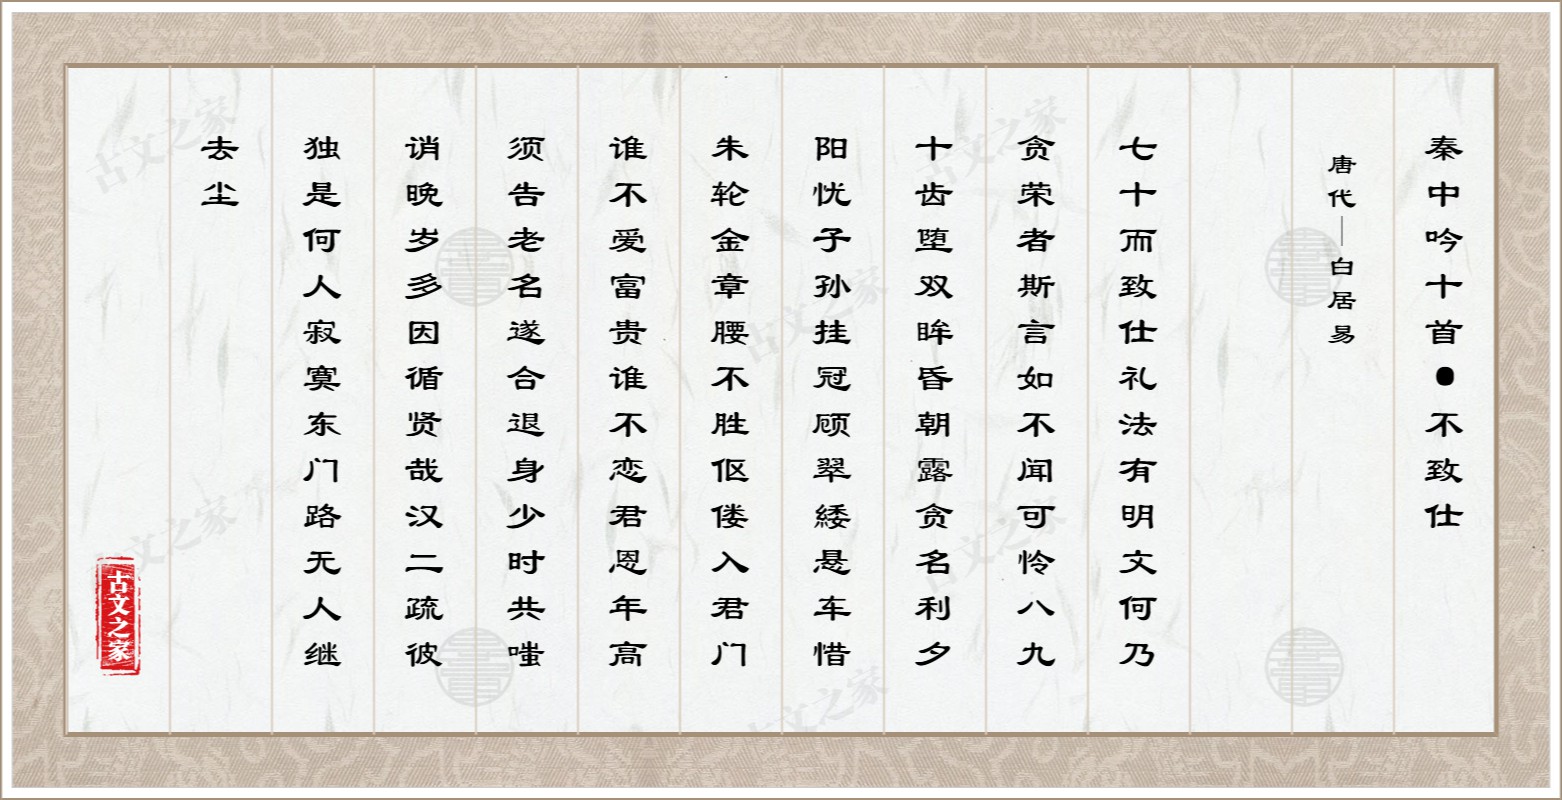 秦中吟十首●不致仕
唐代—白居易
七十而致仕礼法有明文何乃
贪荣者斯言如不闻可怜八九
十齿堕双眸昏朝露贪名利夕
阳忧子孙挂冠顾翠緌悬车惜
朱轮金章腰不胜伛偻入君门
谁不爱富贵谁不恋君恩年高
须告老名遂合退身少时共嗤
诮晚岁多因循贤哉汉二疏彼
独是何人寂寞东门路无人继
去尘
古文之家